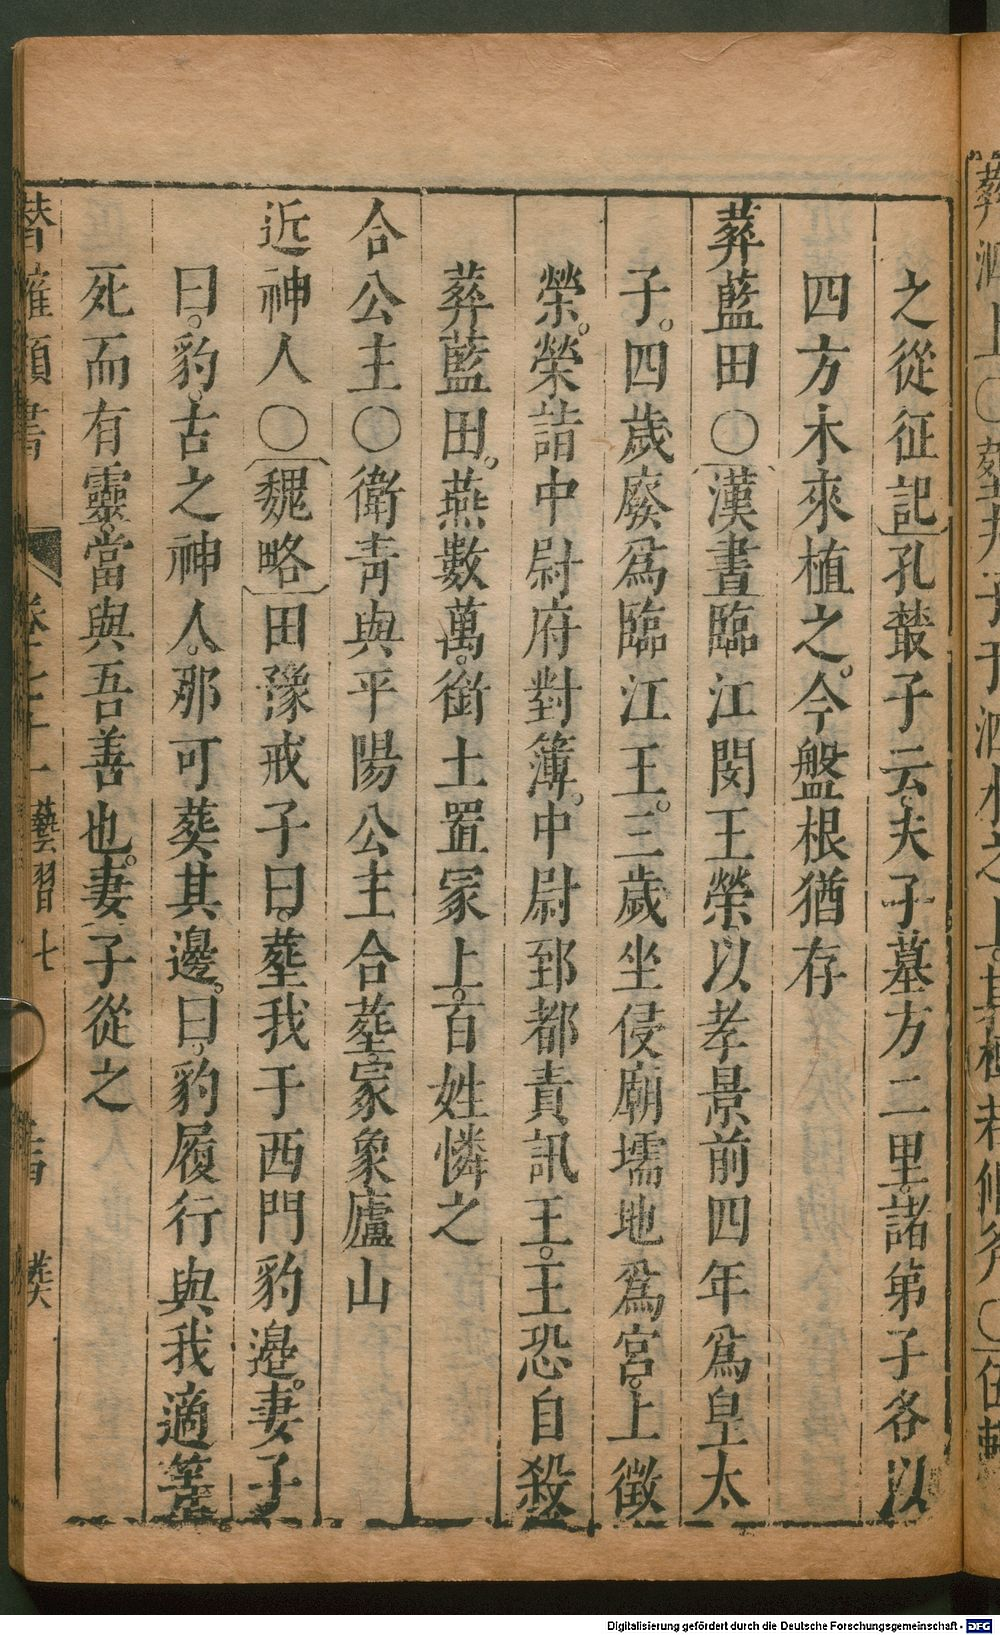 之從征記孔叢子云夫子墓方二里諸弟子各以
四方木來植之今盤根猶存
葬藍田○漢書臨江閔王榮以孝景前四年爲皇太
子四歲廢爲臨江王三歲坐侵廟壖地爲宮上徵
榮榮詣中尉府對簿中尉郅都責訊王王恐自殺
葬藍田燕數萬銜土置冢上百姓憐之
合公主○衛青與平陽公主合塟冢象廬山
近神人○魏略田豫戒子曰塟我于西門豹邉妻子
曰豹古之神人那可葬其邊曰豹履行與我適等
死而有靈當與吾善也妻子從之
潛確類書 卷七十一 藝習七 葬
Digitalisierung gefördert durch die Deutsche Forschungsgemeinschaft - DFG